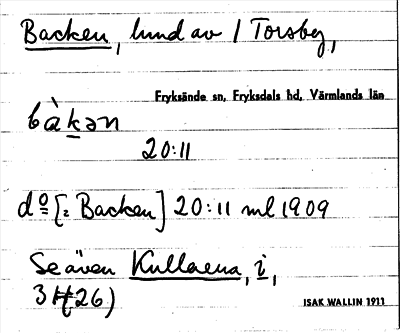 Backen, lund av 1 Torsby,
Fryksände sn, Fryksdals hd, Värmlands län
bàkən
20:11
do [= Backen] 20:11 ml 1909
Se även Kullaena, i,
3 (26)
ISAK WALLIN 1911